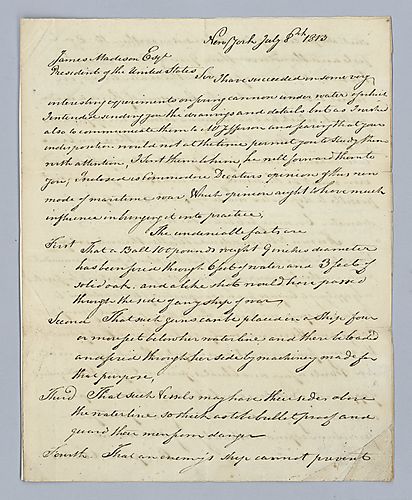 New York July 8th 1813
James Madison Esqr
President of the United States
Sir I have succeeded in some very
interesting experiments on firing cannon under water of which
I intended sending you the drawings and details but as I wished
also to communicate them to Mr Jefferson and fearing that your
indisposition would not at the time permit you to Study them
with attention I sent them to him, he will forward them to
you, inclosed is Commodore Decaturs opinion of this new
mode of maritime war, Which opinion aught to have much
influence in bringing it into practice,
The undeniable facts are
First That a Ball 100 pounds weight 9 inches diameter
has been fired through 6 feet of water and 3 feet of
solid oak. and a like shot would have passed
through the side of any ship of war,
Second That such guns can be placed in a Ship four
or more feet below her water line and there be loaded
and fired through her side by machinery made for
that purpose,
Third That such Vessels may have their sides above
the water line so thick as to be bullet proof and
guard their men from danger
Fourth That an enemy's ship cannot prevent